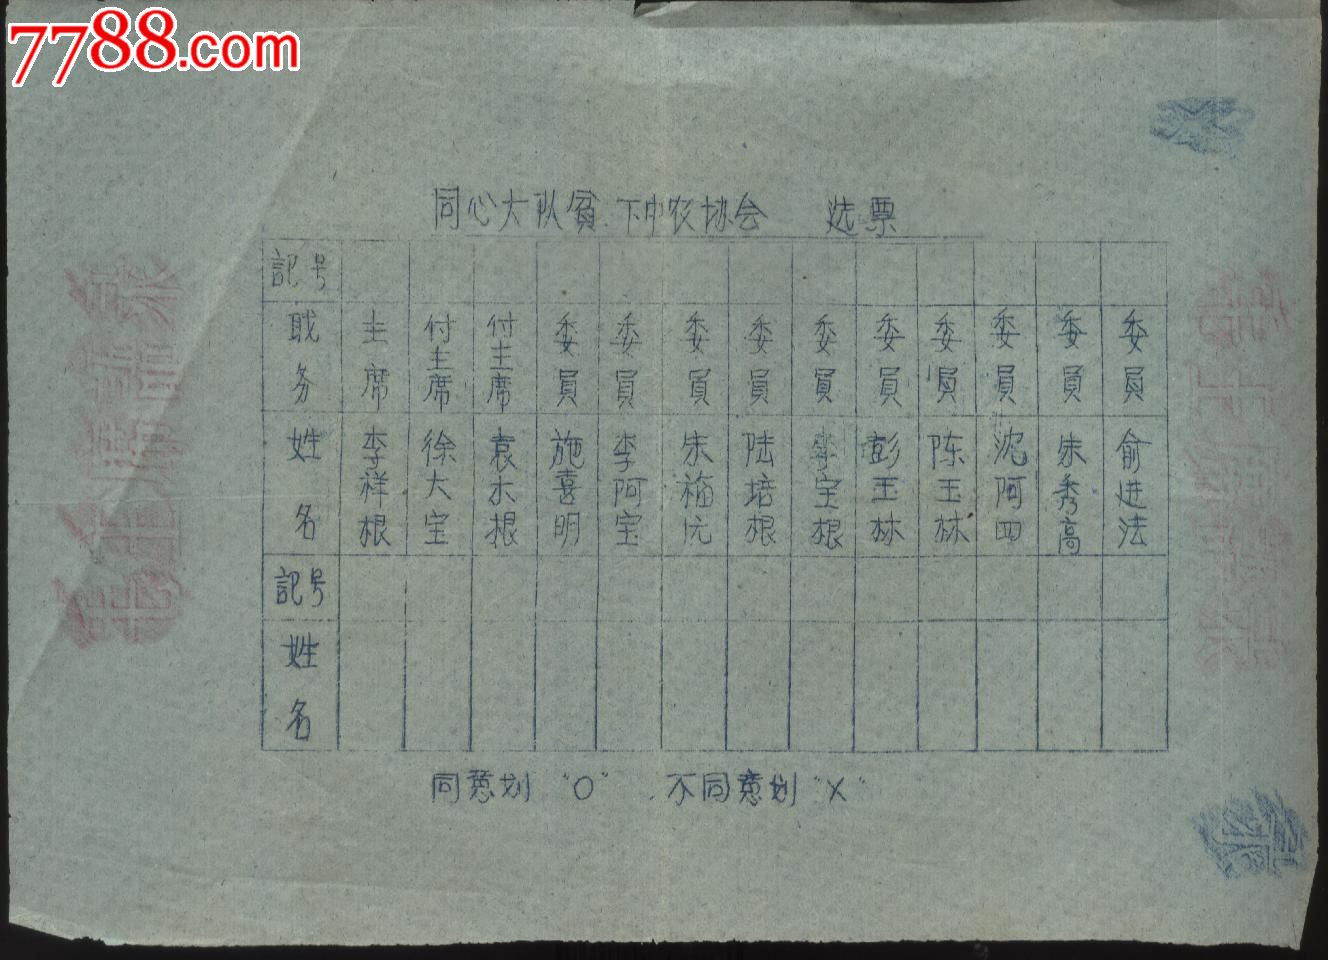 7788.com
同心大队貧.下中农协会 选票
記号
耺务 主席 付主席 付主席 委員 委員 委員 委員 委員 委員 委員 委員 委員 委員
姓名 李祥根 徐大宝 袁水根 施喜明 李阿宝 朱福沅 陆培根 李宝根 彭玉林 陈玉林 沈阿四 朱秀高 俞进法
記号
姓名
同意划 "O" . 不同意划 "X"